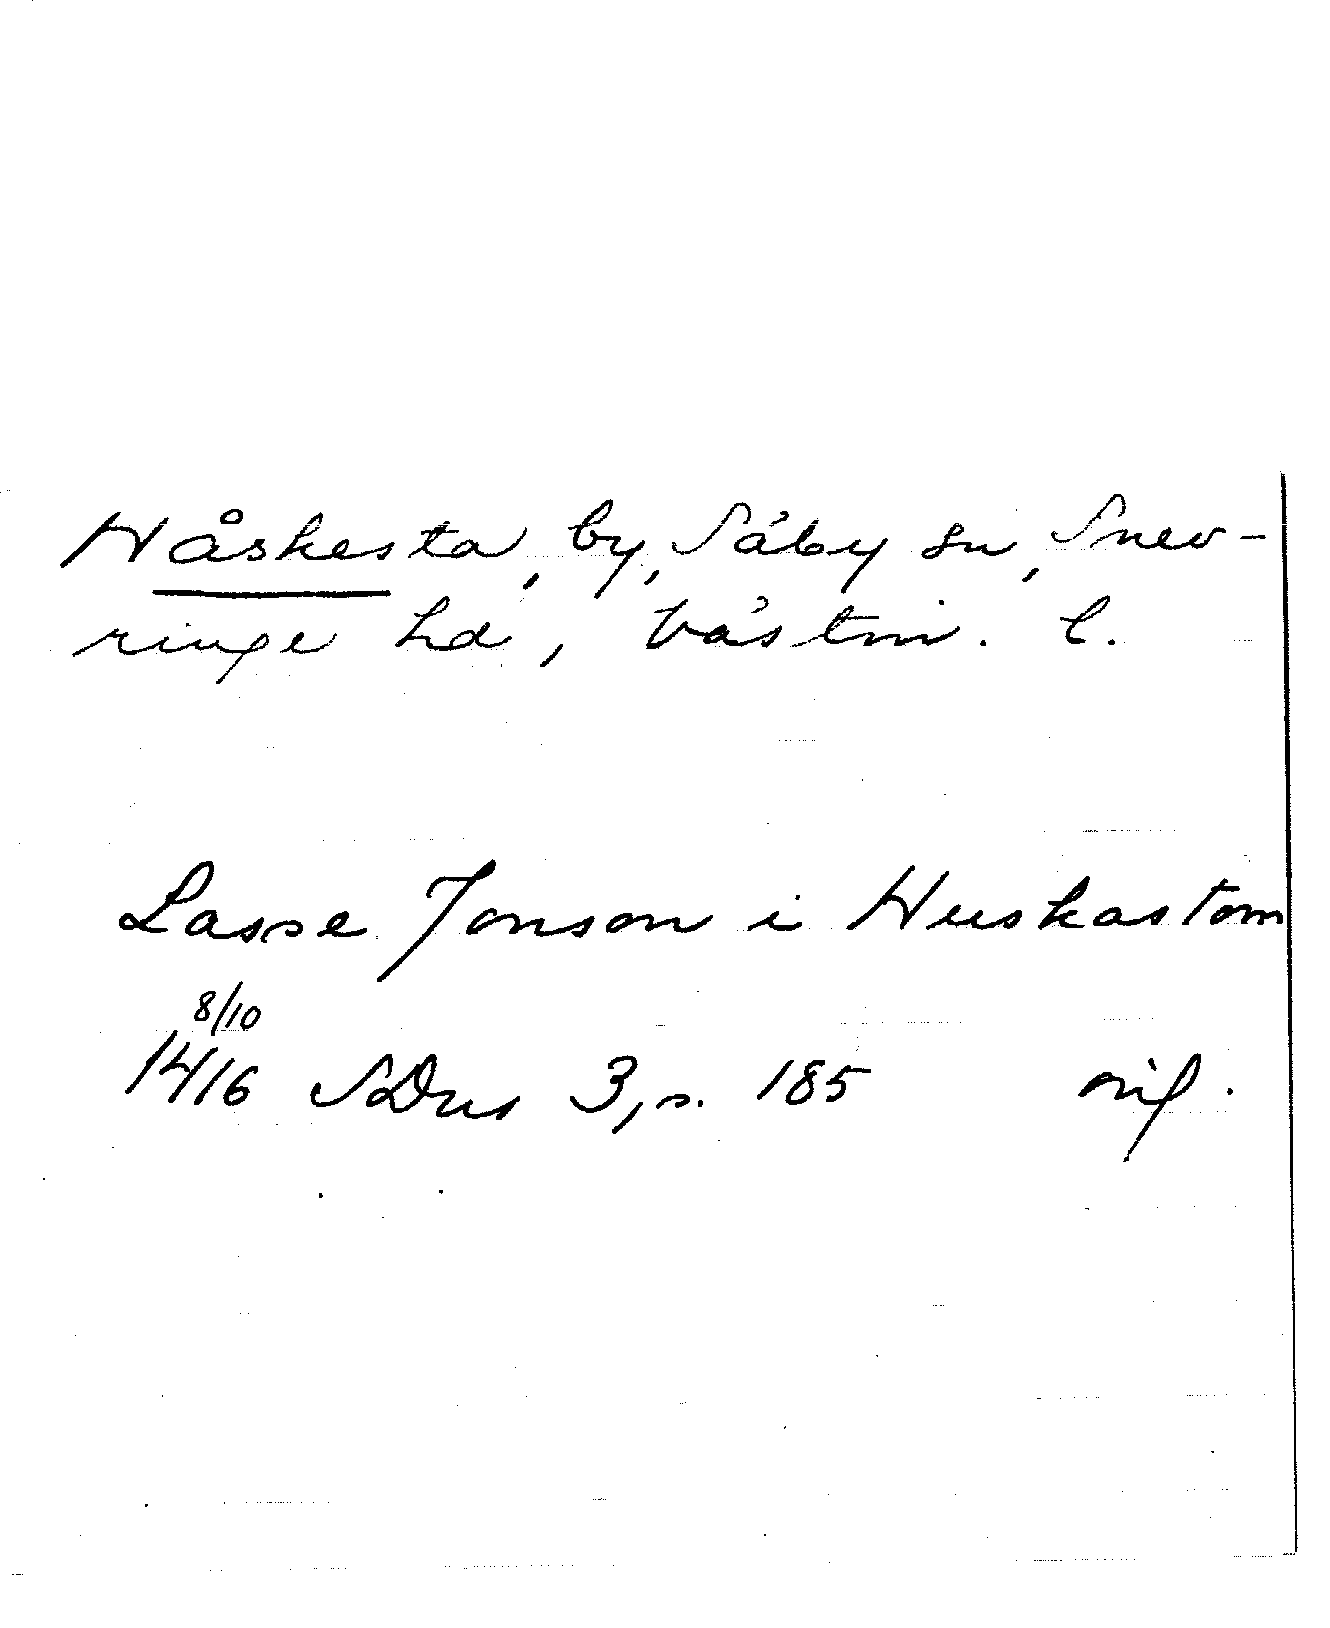 Håskesta, by, Säby sn, Snev-
ringe hd, Västm. l.
Lasse Jonson i Huskastom
8/10
1416 SDns 3, s. 185 orig.